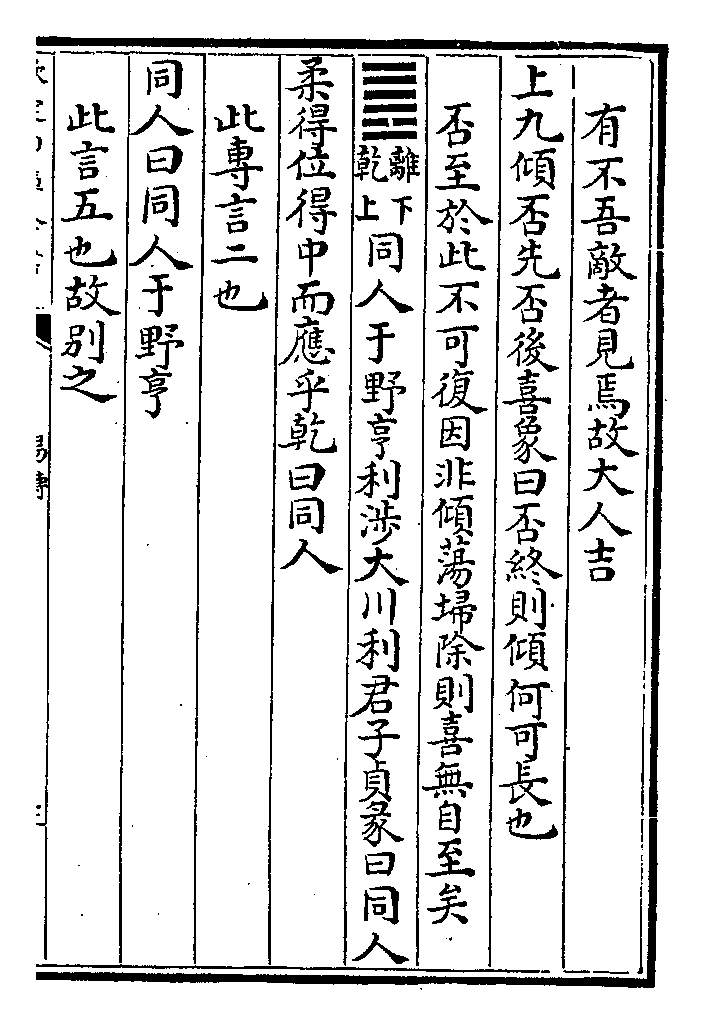 有不吾敵者見焉故大人吉
上九傾否先否後喜象曰否終則傾何可長也
否至於此不可復因非傾蕩埽除則喜無自至矣
䷌離下乾上同人于野亨利涉大川利君子貞彖曰同人
柔得位得中而應乎乾曰同人
此專言二也
同人曰同人于野亨
此言五也故别之
易傳